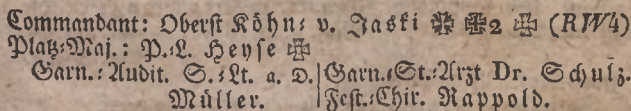 Commandant: Oberst Köhn⸗ v. Jaski ✠ ✠2 ✠ (RW4)
Platz⸗Maj.: P.⸗L. Heyse ✠
Garn.⸗Audit. S.⸗Lt. a. D. Müller.
Garn.⸗St.⸗Arzt Dr. Schulz.
Fest.⸗Chir. Rappold.